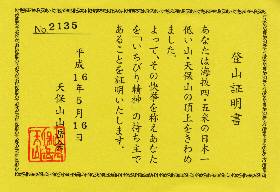 No 2135
登山証明書
あなたは海抜四・五米の日本一
低い山・天保山の頂上をきわめ
ました。
よって、その快挙を称えあなた
を"いちびり精神"の持ち主で
あることを証明いたします。
平成16年5月16日
天保山山岳会